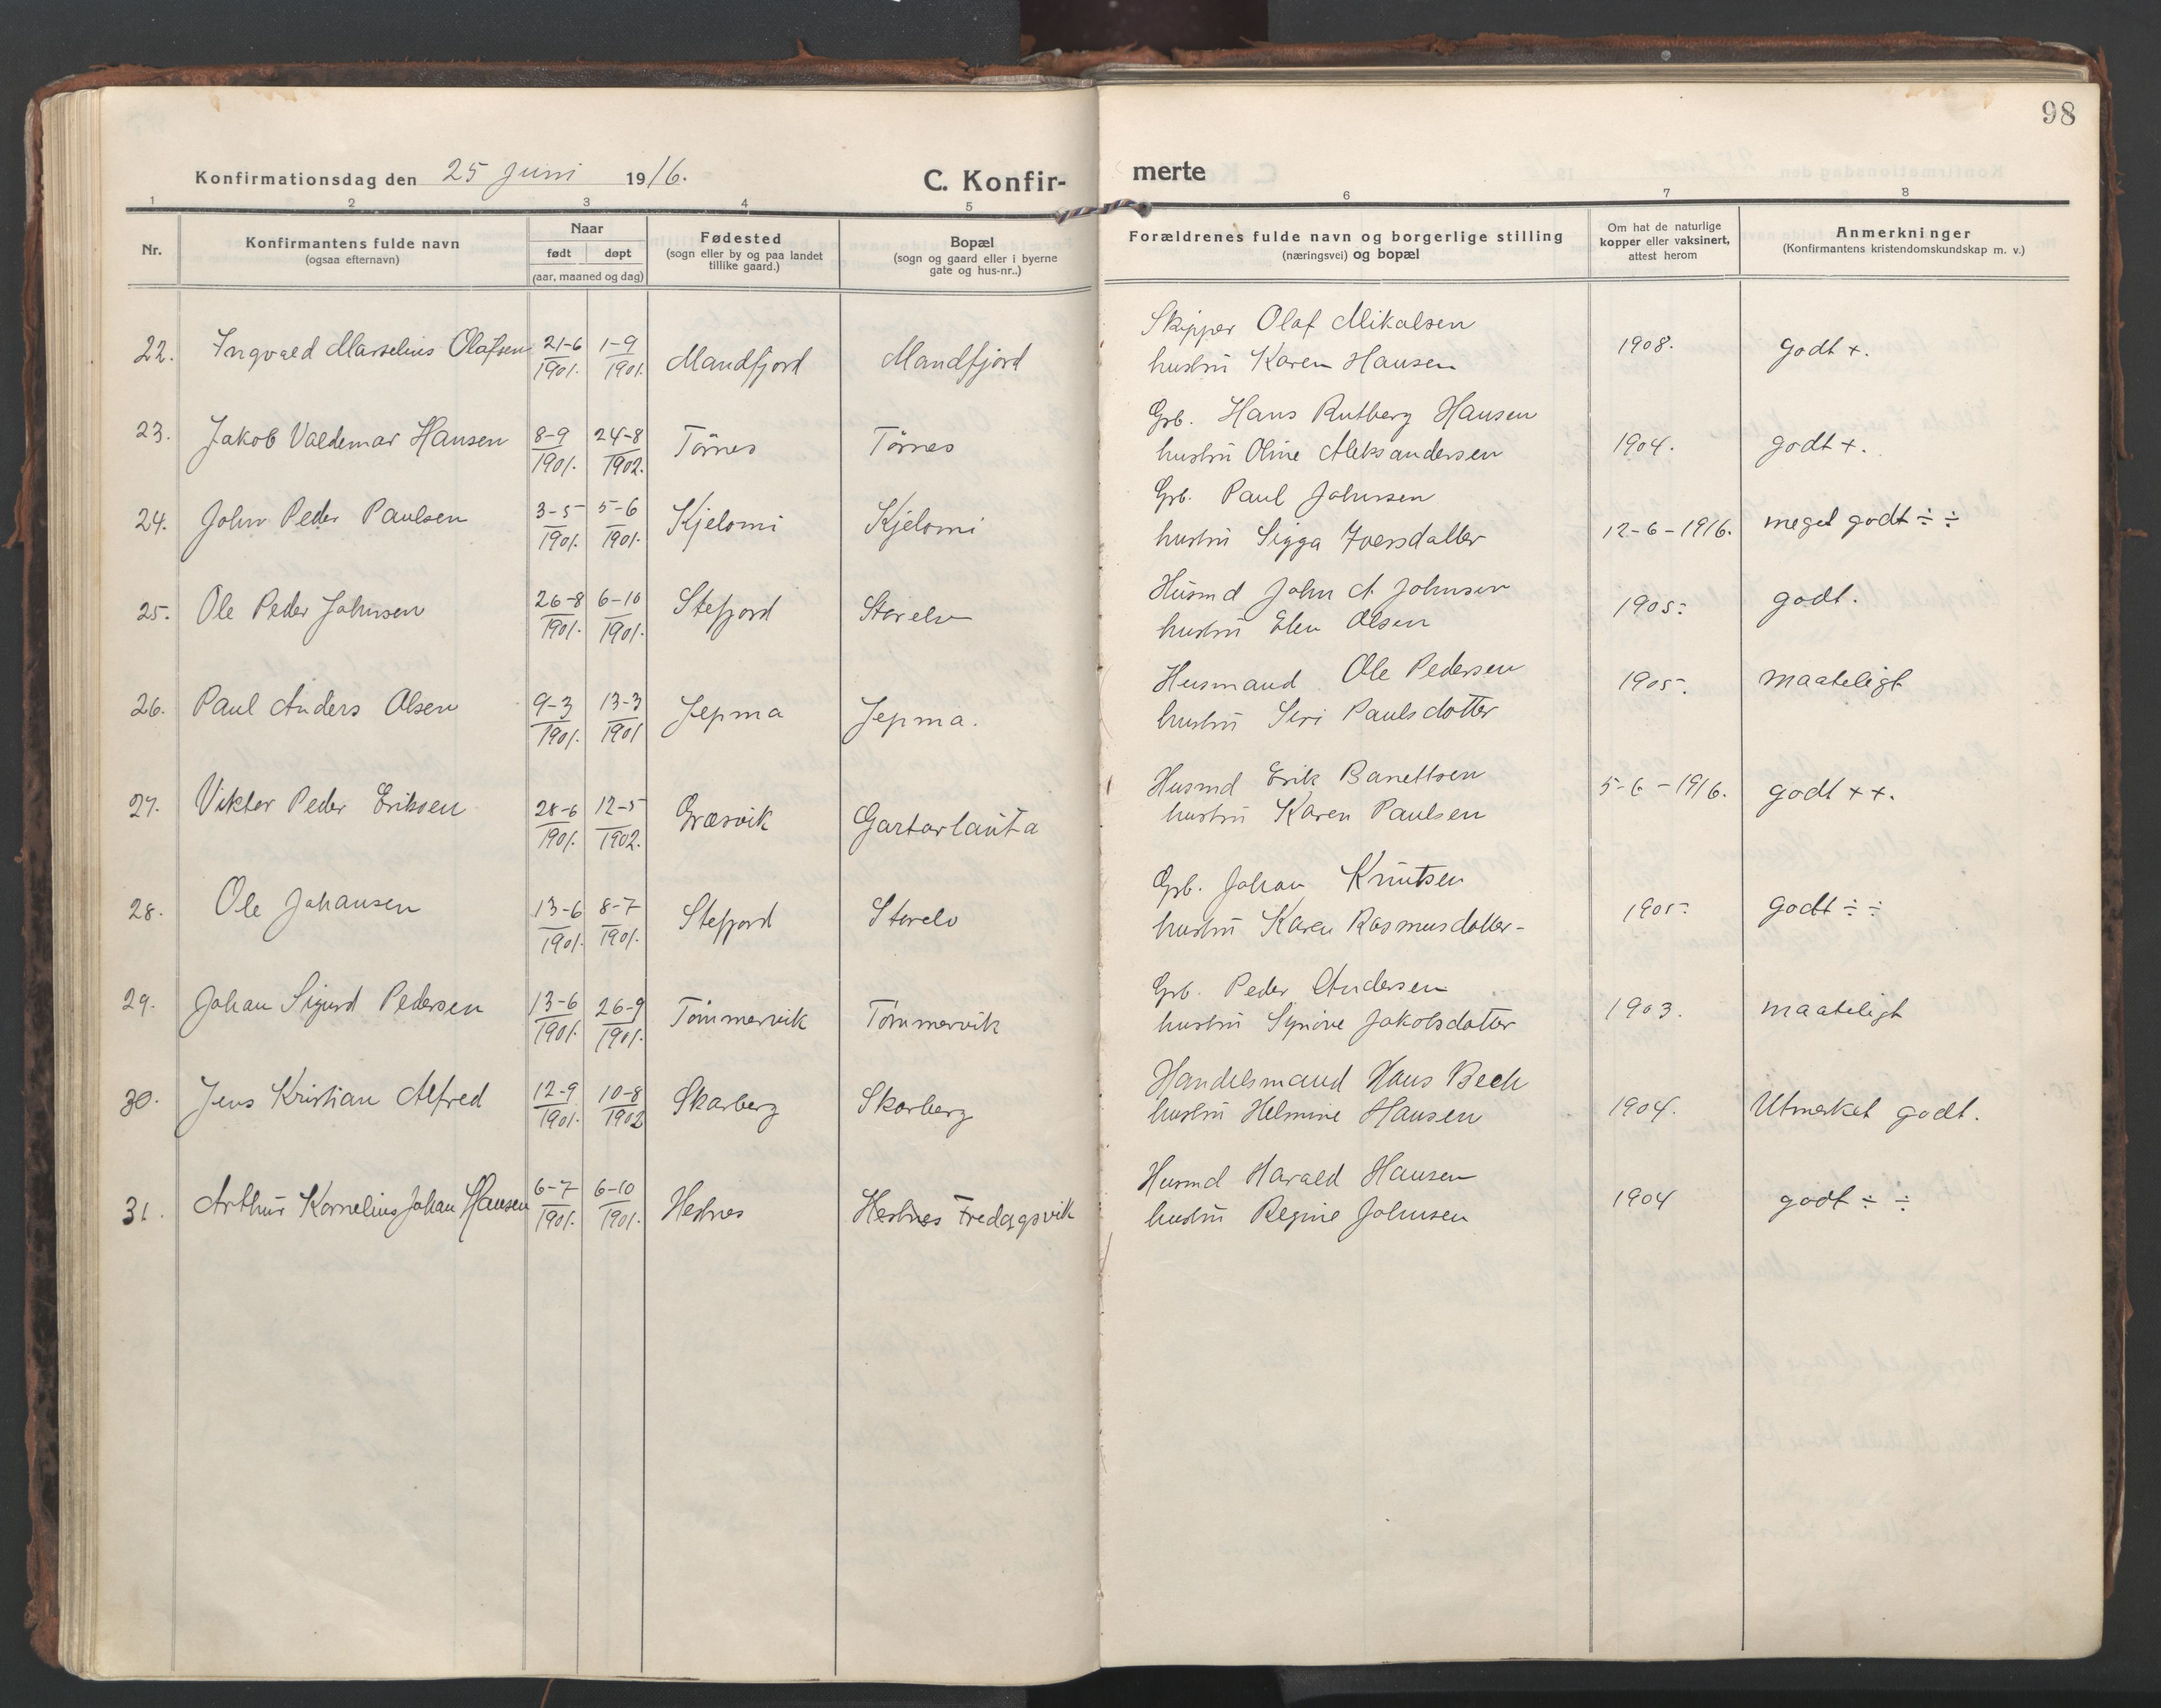 98
Konfirmationsdag den 25 Juni 1916.
C. Konfir-
merte
1 2 3 4 5 6 7 8
Nr.
Konfirmantens fulde navn
(ogsaa efternavn)
Naar
født døpt
(aar, maaned og dag)
Fødested
(sogn eller by og paa landet
tillike gaard.)
Bopæl
(sogn og gaard eller i byerne
gate og hus-nr..)
Forældrenes fulde navn og borgerlige stilling
(næringsvei) og bopæl
Om hat de naturlige
kopper eller vaksinert,
attest herom
Anmerkninger
(Konfirmantens kristendomskundskap m. v.)
Skipper Olaf Mikalsen
22. Ingvald Marselius Olafsen 21-6 1901. 1-9 1901. Mandfjord Mandfjord 1908. godt +.
hustrü Karen Hansen
Grb. Hans Rutberg Hansen
23. Jakob Valdemar Hansen 8-9 1901. 24-8 1902. Törnes Törnes 1904. godt +.
hustrü Oline Aleksandersen
Grb. Paul Johnsen
24. John Peder Paulsen 3-5 1901. 5-6 1901. Kjelomi Kjelomi 12-6-1916. meget godt ÷ ÷
hustrü Sigga Iversdatter
Hüsmd John A Johnsen
25. Ole Peder Johnsen 26-8 1901. 6-10 1901. Stefjord Storelv 1905. godt.
hustrü Elen Olsen
Husmand Ole Pedersen
26. Paul Anders Olsen 9-3 1901. 13-3 1901 Jepma Jepma. 1905. maateligt
hustrü Siri Paulsdotter
Husmd Erik Banettsen
27. Viktor Peder Eriksen 28-6 1901. 12-5 1902. Græsvik Gartarlaüta 5-6-1916. godt ++.
hustrü Karen Paulsen
Grb. Johan Knütsen
28. Ole Johansen 13-6 1901. 8-7 1901. Stefjord Storelv 1905. godt ÷ ÷
hustrü Karen Rasmusdatter-
Grb. Peder Andersen
29. Johan Sigurd Pedersen 13-6 1901. 26-9 1901. Tömmervik Tömmervik 1903. maateligt
hustrü Synöve Jakobsdatter
Handelsmand Hans Bech
30. Jens Kristian Alfred 12-9 1901. 10-8 1902 Skarberg Skarberg 1904. Utmerket godt.
hustrü Helmine Hansen
Husmd Harald Hansen
31. Arthür Kornelius Johan Hansen 6-7 1901. 6-10 1901. Hestnes Hestnes Fredagsvik 1904 godt ÷ ÷
hustrü Regine Johnsen